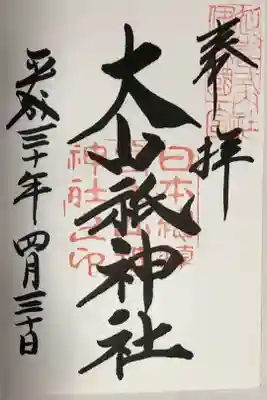 奉拝
大山祇神社
日本總鎮
神社之印
平成三十年四月三十日